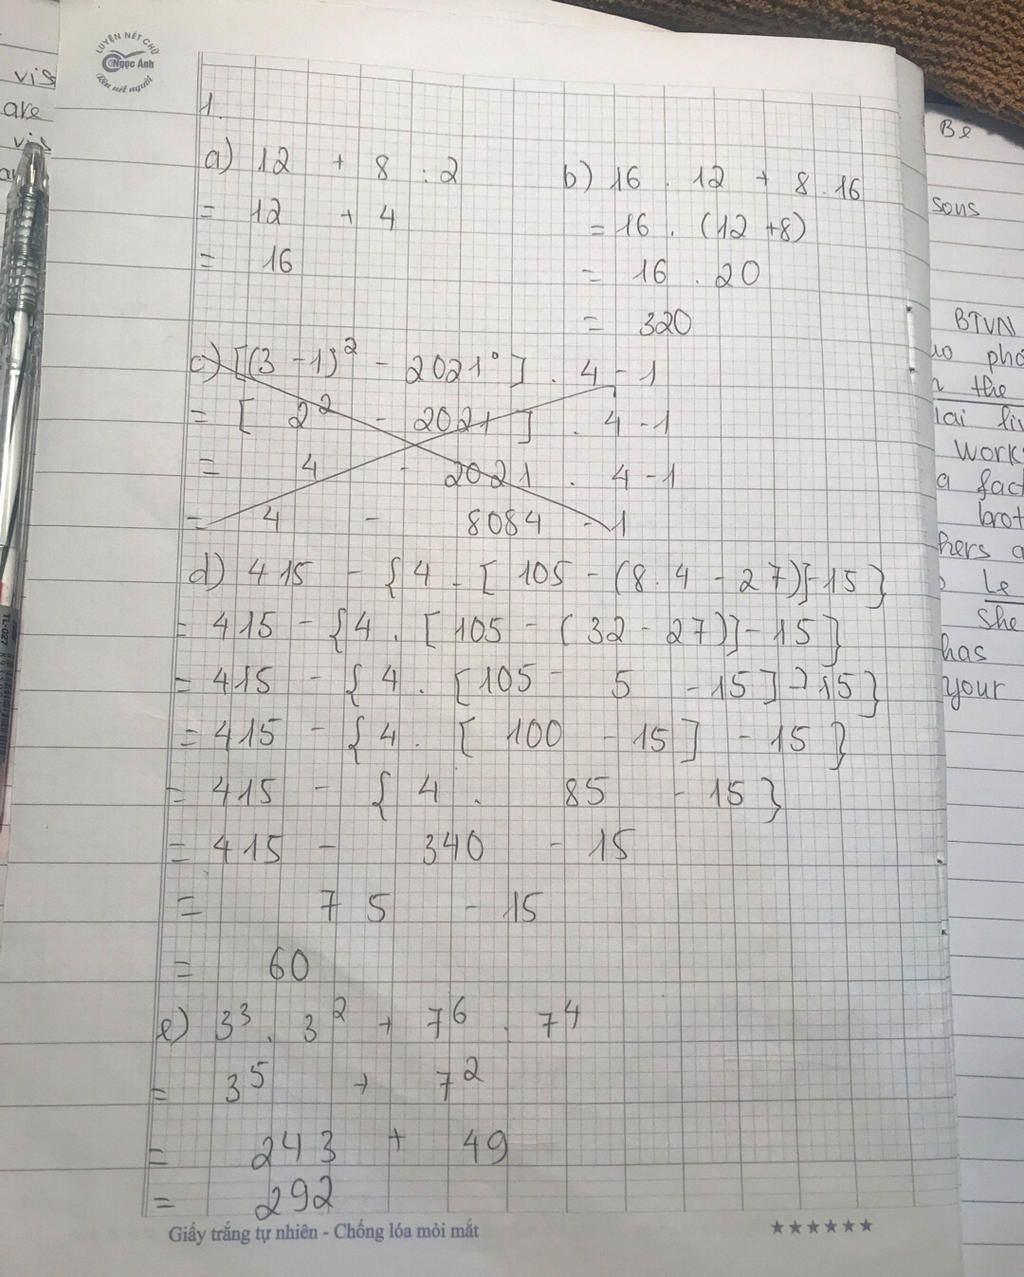 LUYỆN NÉT CHỮ
Ngọc Ánh
Rèn nết người
1.
a) 12 + 8 : 2
= 12 + 4
= 16
b) 16 . 12 + 8 . 16
= 16 . (12 + 8)
= 16 . 20
= 320
c) [(3 - 1)² - 2021⁰] . 4 - 1
= [ 2² - 2021 ] . 4 - 1
= 4 - 2021 . 4 - 1
= 4 - 8084 - 1
d) 415 - {4 . [ 105 - (8 . 4 - 27)] - 15 }
= 415 - {4 . [105 - ( 32 - 27)] - 15 }
= 415 - { 4 . [105 - 5 - 15] - 15}
= 415 - { 4 . [ 100 - 15 ] - 15 }
= 415 - { 4 . 85 - 15 }
= 415 - 340 - 15
= 75 - 15
= 60
e) 3³ . 3² + 7⁶ : 7⁴
= 3⁵ + 7²
= 243 + 49
= 292
Giấy trắng tự nhiên - Chống lóa mỏi mắt
vis
are
vis
TL-027
Be
sons
BTVN
pho
the
lai
Work
a fact
brot
hers a
Le
She
has
your